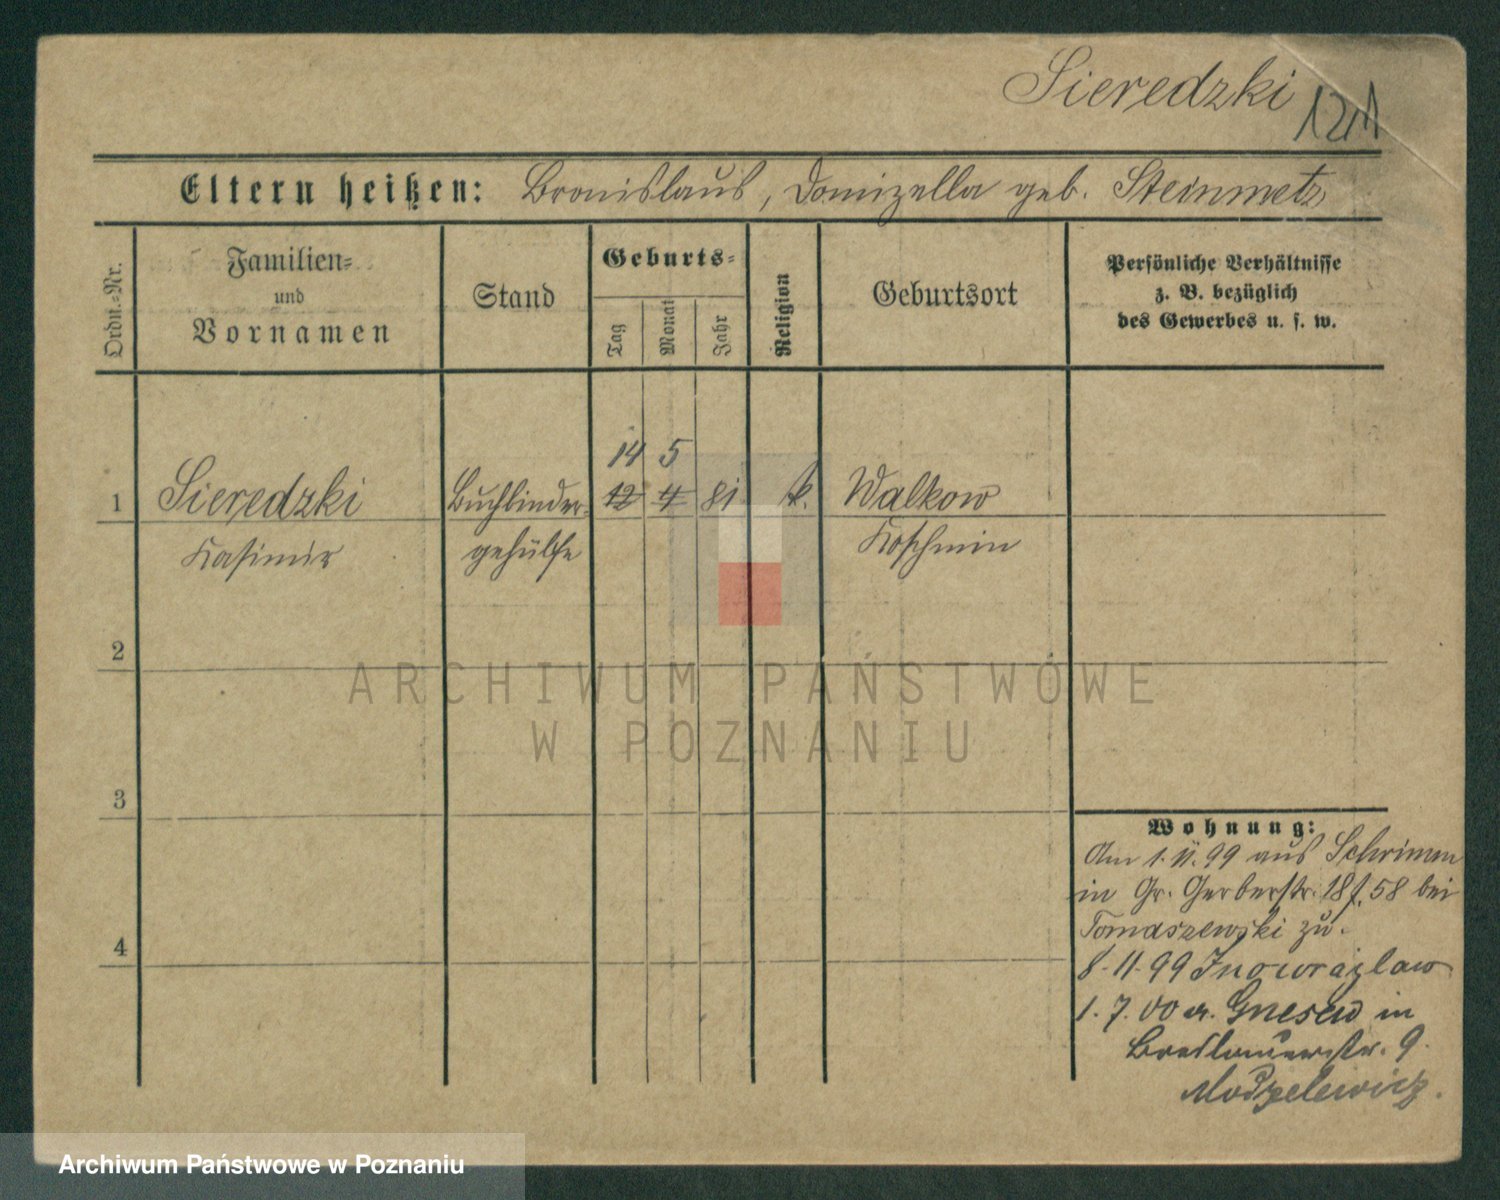 Sieredzki
121
Eltern heißen: Bronislaus, Domizella geb. Steinmetz
Ordn.=Nr.
Familien=
und
Vornamen
Stand
Geburts=
Tag
Monat
Jahr
Religion
Geburtsort
Persönliche Verhältnisse
z. B. bezüglich
des Gewerbes u. s. w.
14 5
1 Sieredzki Buchbinder- 12 4 81 k. Walkow
Kasimir gehülfe Koschmin
2
3
4
Wohnung:
Am 1.11.99 aus Schrimm
in Gr. Gerberstr. 18 f. 58 bei
Tomaszewski zu.
8-11-99 Inowrazlaw
1.7.00 a. Gnesen in
Breslauerstr. 9.
Modzelewicz.
ARCHIWUM PAŃSTWOWE
W POZNANIU
Archiwum Państwowe w Poznaniu